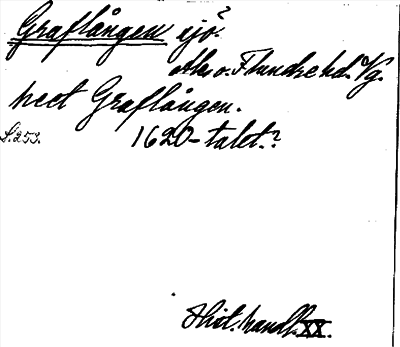 Graflången sjö?
Ale o. Flundre hd. Vg.
neet Graflången.
S. 253. 1620-talet?
Hist. handl. XX.